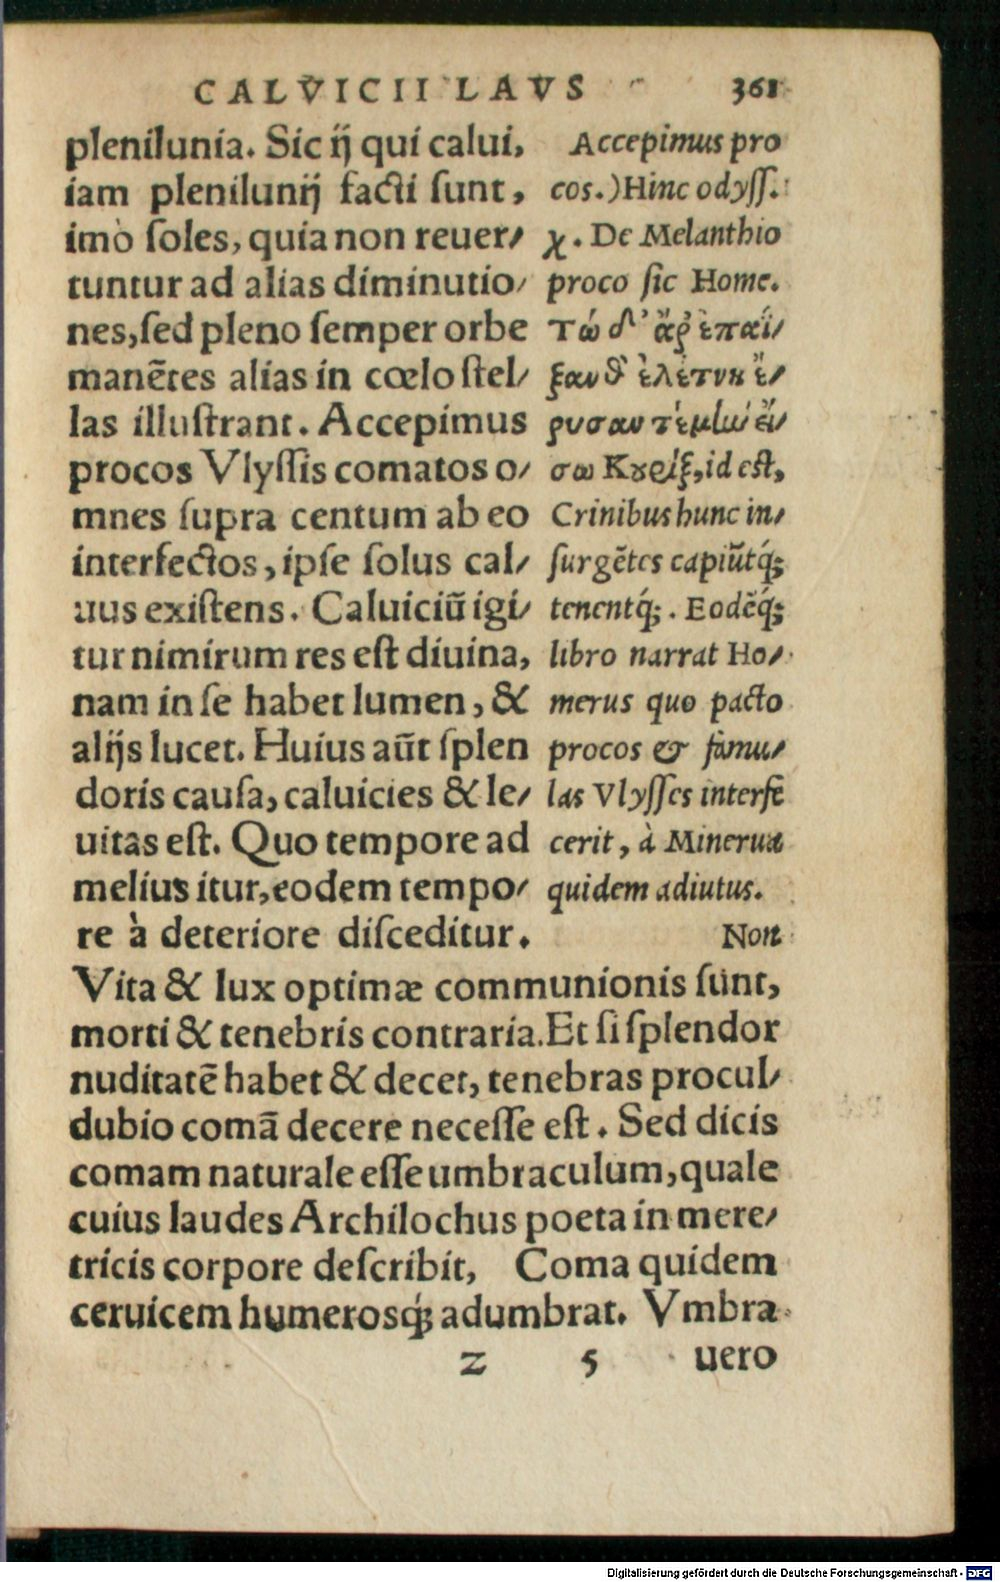 CALVICII LAVS 361
plenilunia. Sic ij qui calui,
iam plenilunij facti sunt,
imò soles, quia non reuer/
tuntur ad alias diminutio/
nes, sed pleno semper orbe
manẽtes alias in cœlo stel/
las illustrant. Accepimus
procos Vlyssis comatos o/
mnes supra centum ab eo
interfectos, ipse solus cal/
uus existens. Caluiciũ igi/
tur nimirum res est diuina,
nam in se habet lumen, &
alijs lucet. Huius aũt splen
doris causa, caluicies & le/
uitas est. Quo tempore ad
melius itur, eodem tempo/
re à deteriore disceditur.
Accepimus pro
cos.) Hinc odyss.
χ. De Melanthio
proco sic Home.
Τὼ δ' ἄρ ἐπαΐ/
ξανθ' ἑλέτην ἔ/
ρυσαν τέ μιν εἴ/
σω Κουρὶξ, id est,
Crinibus hunc in/
surgẽtes capiũtq́;
tenentq́;. Eodẽq́;
libro narrat Ho/
merus quo pacto
procos & famu/
las Vlysses interfe
cerit, à Minerua
quidem adiutus.
Non
Vita & lux optimæ communionis sunt,
morti & tenebris contraria. Et si splendor
nuditatẽ habet & decet, tenebras procul/
dubio comã decere necesse est. Sed dicis
comam naturale esse umbraculum, quale
cuius laudes Archilochus poeta in mere/
tricis corpore describit, Coma quidem
ceruicem humerosq́; adumbrat. Vmbra
z 5 uero
Digitalisierung gefördert durch die Deutsche Forschungsgemeinschaft - DFG